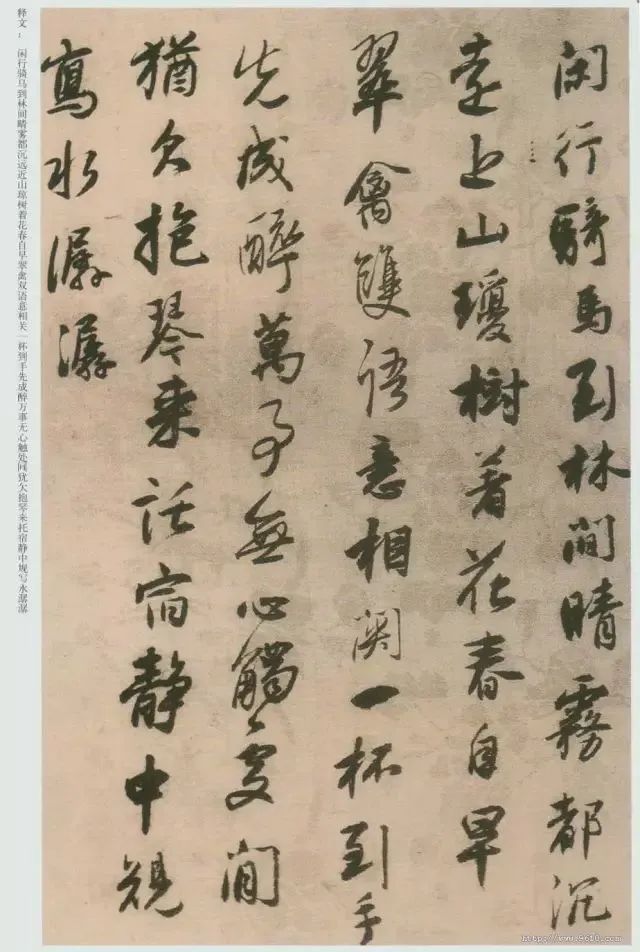 闲行騎馬到林間晴霧都沉
遠上山瓊樹着花春自早
翠禽雙語意相関一杯到手
先成醉萬事無心觸處閒
猶欠抱琴来託宿静中規
寫水潺潺
释文： 闲行骑马到林间晴雾都沉远近山琼树着花春自早翠禽双语意相关一杯到手先成醉万事无心触处间犹欠抱琴来托宿静中规写水潺潺
http://www.9610.com